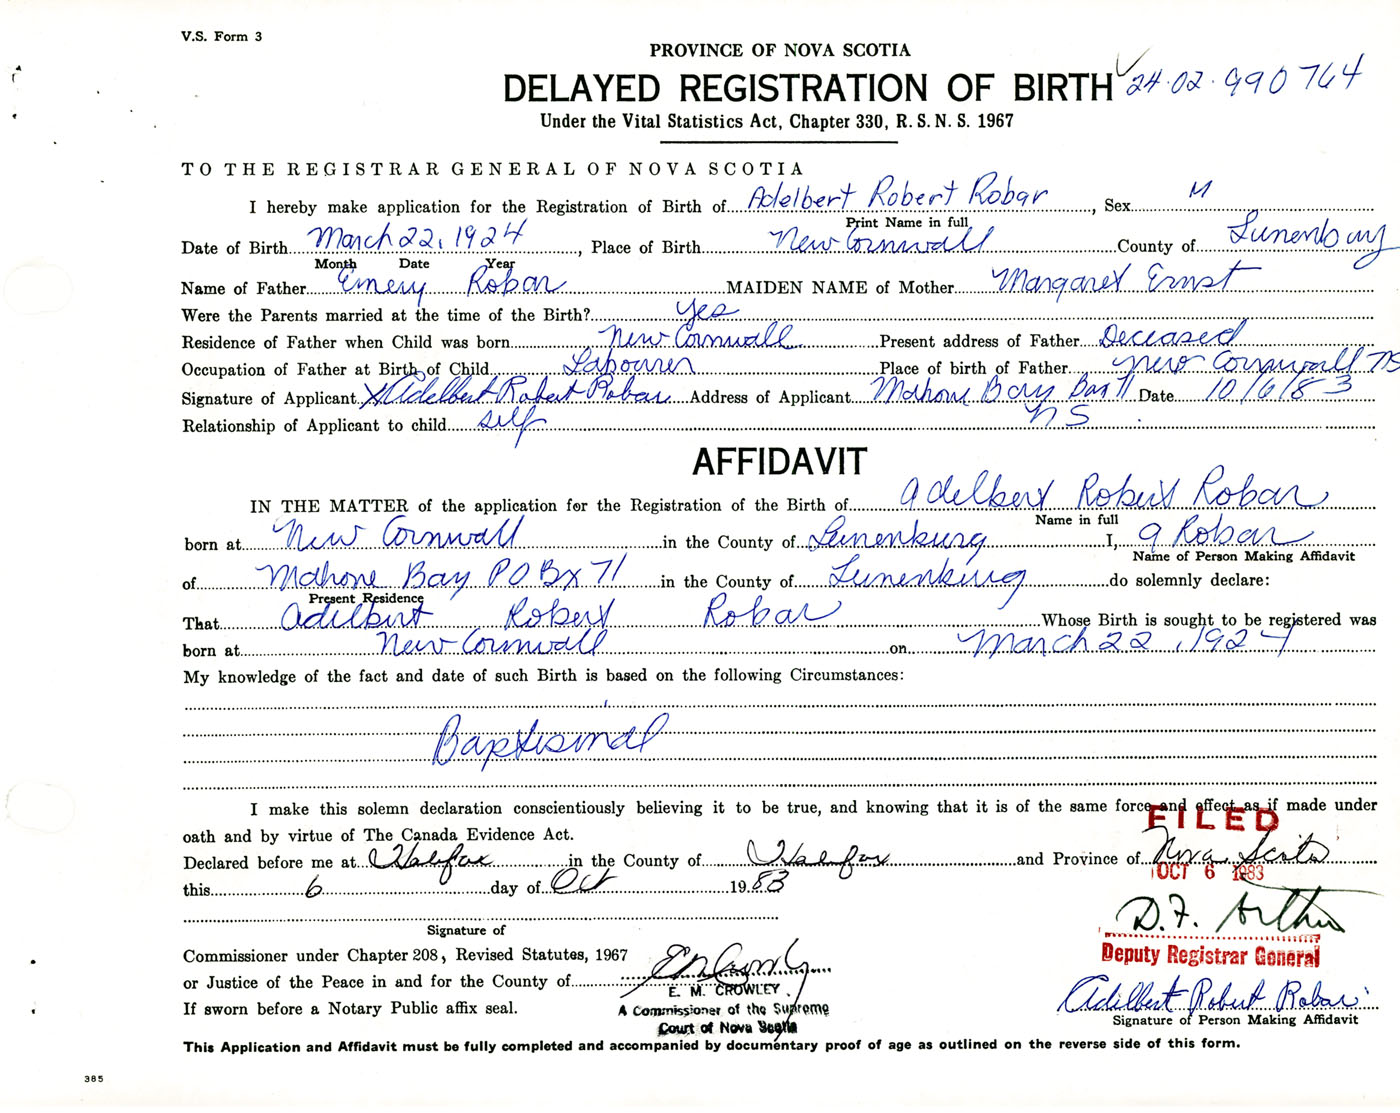 V.S. Form 3
PROVINCE OF NOVA SCOTIA
DELAYED REGISTRATION OF BIRTH 24·02·990764
Under the Vital Statistics Act, Chapter 330, R.S.N.S. 1967
TO THE REGISTRAR GENERAL OF NOVA SCOTIA
I hereby make application for the Registration of Birth of Adelbert Robert Robar, Sex M
Print Name in full
Date of Birth March 22, 1924, Place of Birth New Cornwall County of Lunenburg
Month Date Year
Name of Father Emery Robar MAIDEN NAME of Mother Margaret Ernst
Were the Parents married at the time of the Birth? yes
Residence of Father when Child was born New Cornwall Present address of Father Deceased
Occupation of Father at Birth of Child Labourer Place of birth of Father New Cornwall NS
Signature of Applicant x Adelbert Robert Robar Address of Applicant Mahone Bay Box 71 Date 10/6/83
Relationship of Applicant to child self NS
AFFIDAVIT
IN THE MATTER of the application for the Registration of the Birth of Adelbert Robert Robar
Name in full
born at New Cornwall in the County of Lunenburg I, A Robar
Name of Person Making Affidavit
of Mahone Bay P O Bx 71 in the County of Lunenburg do solemnly declare:
Present Residence
That Adelbert Robert Robar Whose Birth is sought to be registered was
born at New Cornwall on March 22, 1924
My knowledge of the fact and date of such Birth is based on the following Circumstances:
Baptismal
I make this solemn declaration conscientiously believing it to be true, and knowing that it is of the same force and effect as if made under
oath and by virtue of The Canada Evidence Act.
FILED
Declared before me at Halifax in the County of Halifax and Province of Nova Scotia
OCT 6 1983
this 6 day of Oct 1983
D.F. Arthur
Signature of
Deputy Registrar General
Commissioner under Chapter 208, Revised Statutes, 1967
or Justice of the Peace in and for the County of
E. M. CROWLEY
If sworn before a Notary Public affix seal.
A Commissioner of the Supreme
Court of Nova Scotia
Adelbert Robert Robar
Signature of Person Making Affidavit
This Application and Affidavit must be fully completed and accompanied by documentary proof of age as outlined on the reverse side of this form.
385